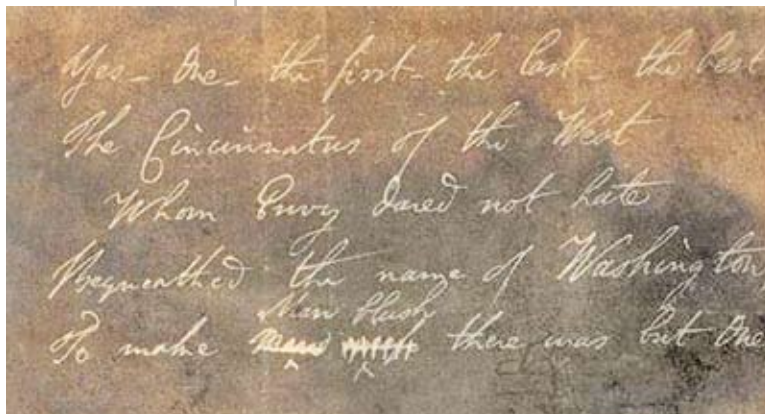 Yes – One – the first – the last – the best
The Cincinnatus of the West
Whom Envy dared not hate
Bequeathed the name of Washington,
Man blush
To make there was but One